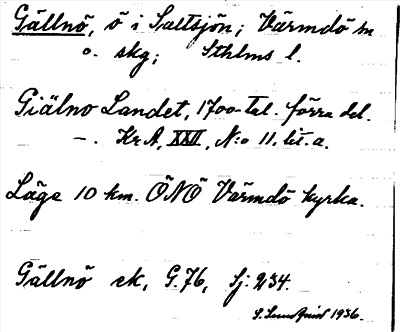 Gällnö, ö i Saltsjön; Värmdö sn
o. skg; Sthlms l.
Giälno Landet, 1700-tal. förra del.
–. Kr.A, XXII, N:o 11. lit. a.
Läge 10 km. ÖNÖ Värmdö kyrka.
Gällnö ek, G.76, Sj: 234.
S. Sundquist 1936.